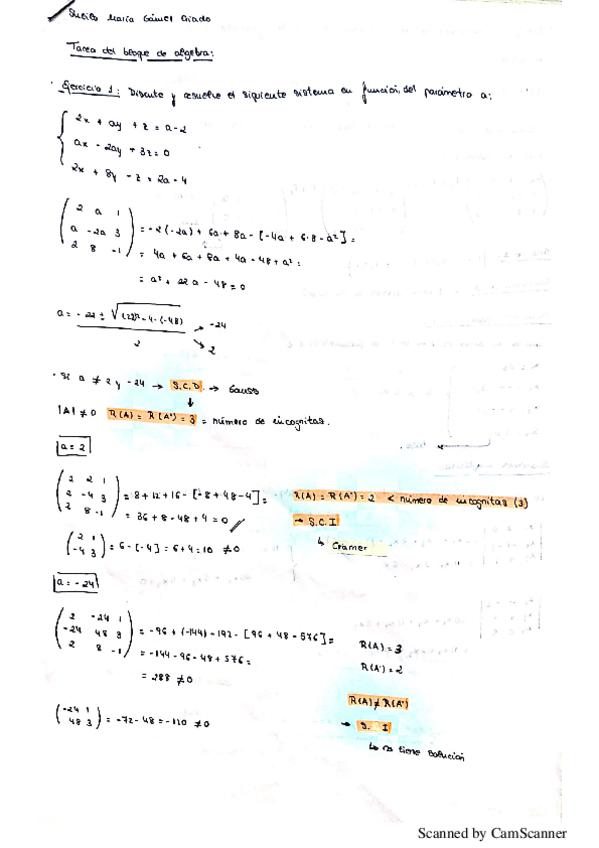 María Gámez Criado
Tarea del bloque de algebra:
· Ejercicio 1: Discute y resuelve el siguiente sistema en función del parámetro a:
2x + ay + z = a-2
ax - 2ay + 3z = 0
2x + 8y - z = 2a - 4
( 2 a 1
a -2a 3 ) = -2(-2a) + 6a + 8a - [-4a + 6·8 - a²] =
2 8 -1 = 4a + 6a + 8a + 4a - 48 + a² =
= a² + 22a - 48 = 0
a = -22 ± √(22)² - 4·(-48) → -24
2 → 2
· Si a ≠ 2 y -24 → S.C.D. → Gauss
|A| ≠ 0 R(A) = R(A*) = 3 = número de incognitas.
a = 2
( 2 2 1
2 -4 3 ) = 8 + 12 + 16 - [-8 + 48 - 4] = R(A) = R(A*) = 2 < número de incognitas (3)
2 8 -1 = 36 + 8 - 48 + 4 = 0 → S.C.I
( 2 1
-4 3 ) = 6 - [-4] = 6 + 4 = 10 ≠ 0 ↳ Cramer
a = -24
( 2 -24 1
-24 48 3 ) = -96 + (-144) - 192 - [96 + 48 - 576] = R(A) = 3
2 8 -1 = -144 - 96 - 48 + 576 = R(A*) = 2
= 288 ≠ 0
R(A) ≠ R(A*)
( -24 1
48 3 ) = -72 - 48 = -120 ≠ 0 → S. I
↳ no tiene solución
Scanned by CamScanner